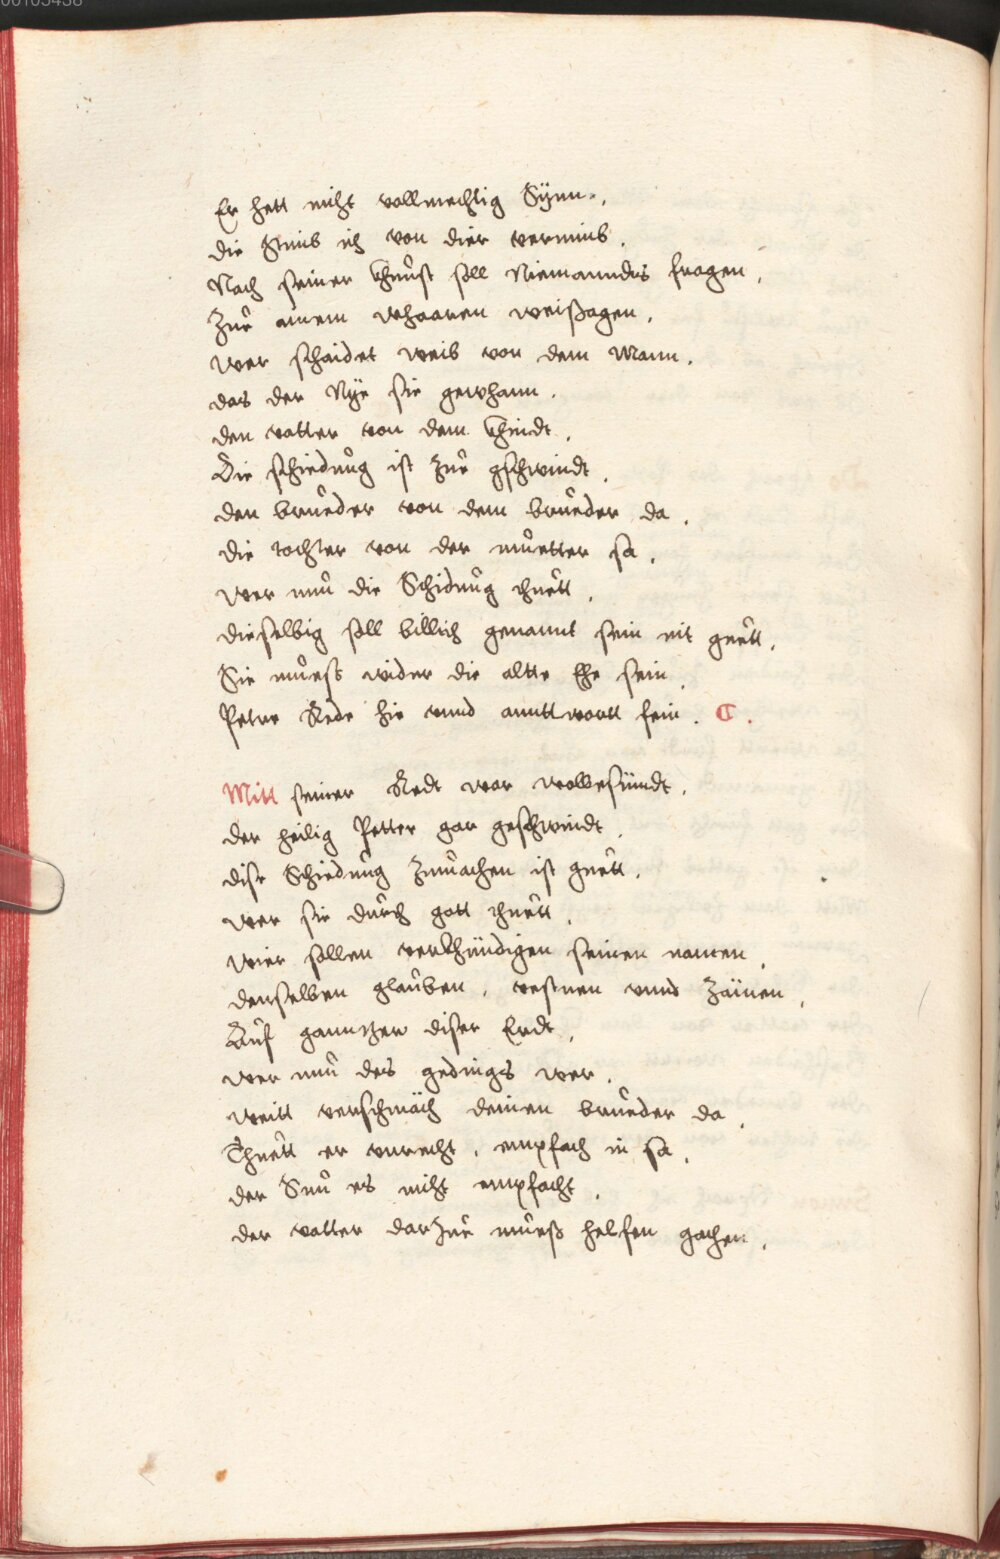 00105438
Er hett nicht vollmechtig Sÿnn.,
die Stim ich von dier vernimb.
Nach seiner khunst soll Niemanndts fragen,
Zue ainem whaaren weissagen.
wer schaidet weib von dem Mann.
das der Nÿe sie gewhann.
den vatter von dem khindt,
Die schiedung ist Zue gschwindt.
den brueder von dem brueder da,
die tochter von der muetter sa.
wer nun die Schidung thuett,
dieselbig soll billich genannt sein nit guett,
Sie muess wider die altte Ehe sein,
Petre Rede hie vnnd anntt wortt fein. C.
Mitt seiner Redt war wolbesündt,
der heilig Petter gar geschwindt,
dise Schiedung Zumachen ist guett,
wer sie durch gott thuett,
wier sollen verkhündigen seinen namen,
denselben glauben, vestnen vnnd Zäinen,
Auf ganntzer diser Erdt,
wer nun des gedings wer,
weitt verschmäch deinen brueder da,
Thuett er vnrecht, empfach in sa,
der Sun es nicht empfacht,
der vatter darZue muess helfen gachen,